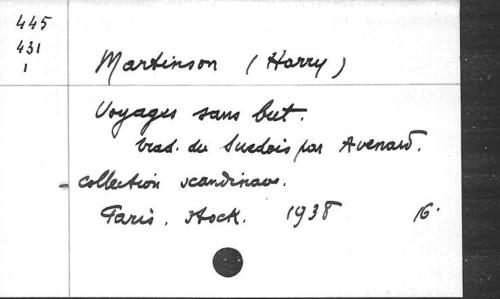 445
431
1
Martinson (Harry)
Voyages sans but.
trad. du Suedois par Avenard.
- collection scandinave.
Paris. Stock. 1938 16.